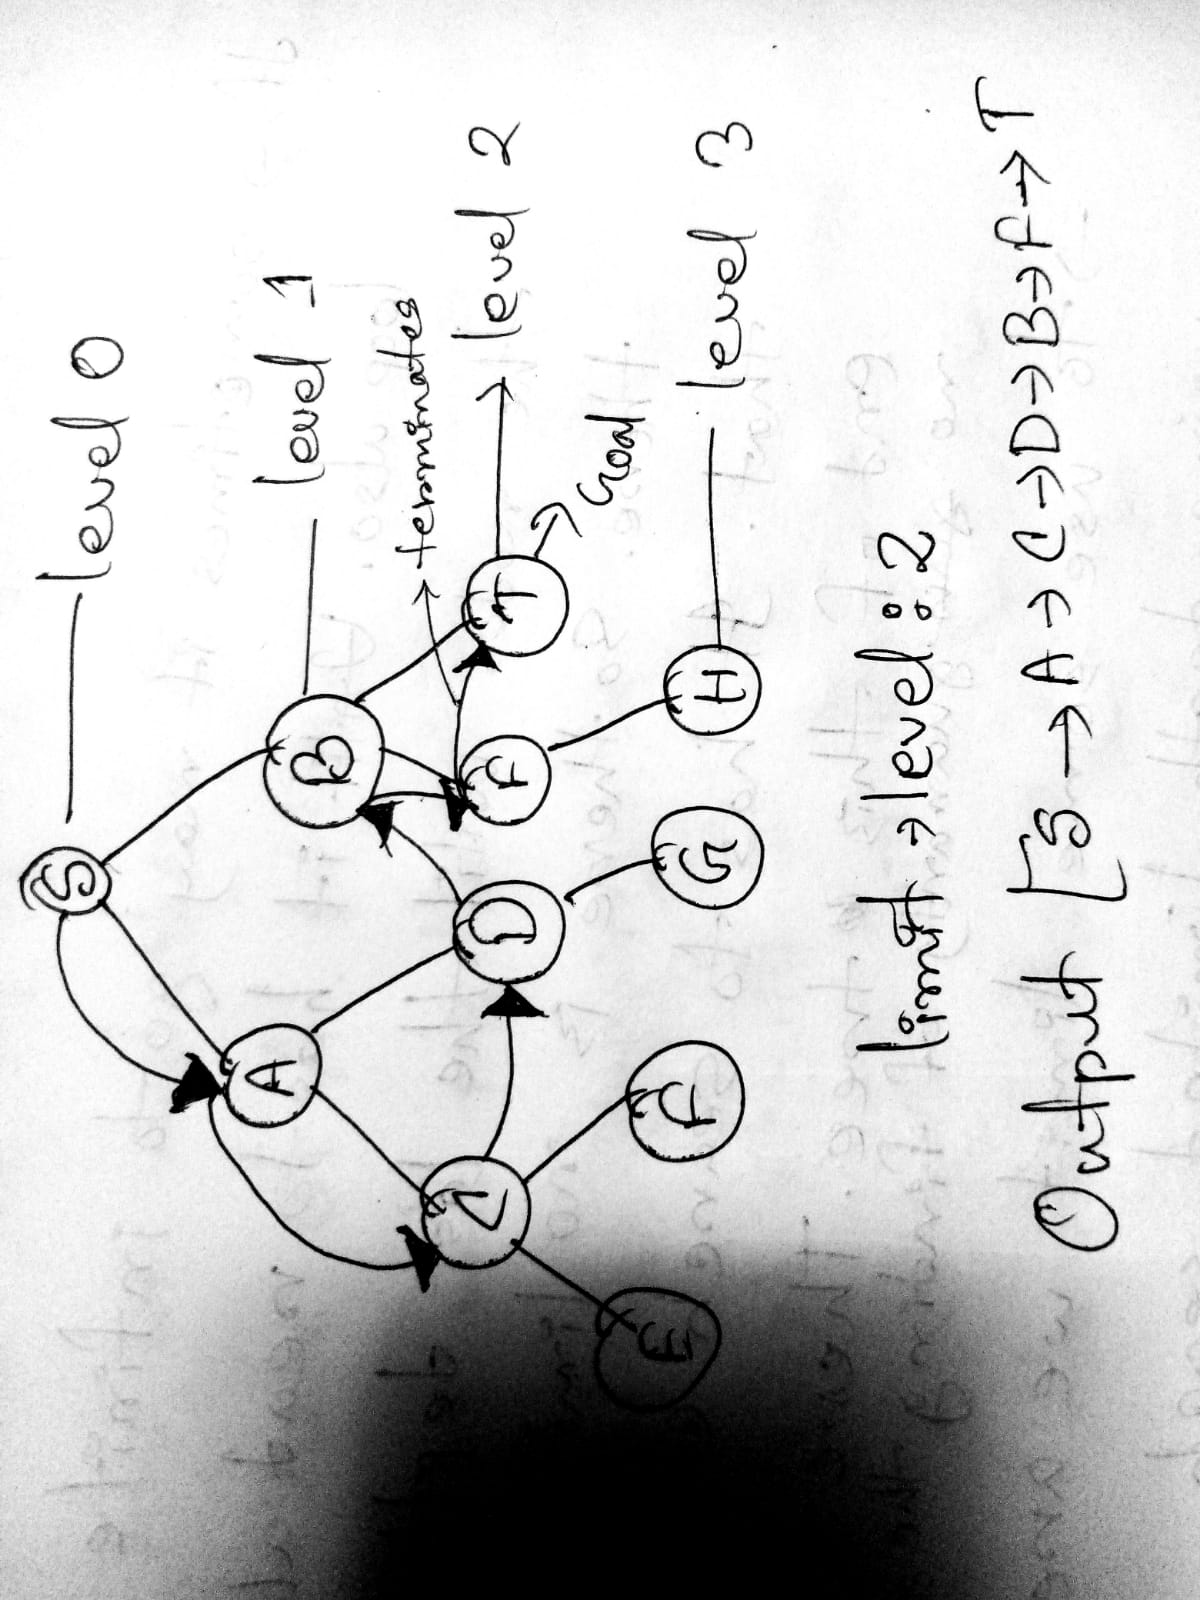 S level 0
A
B level 1
terminates
C D F T level 2
Goal
E F G H level 3
limit → level : 2
Output [ S → A → C → D → B → F → T